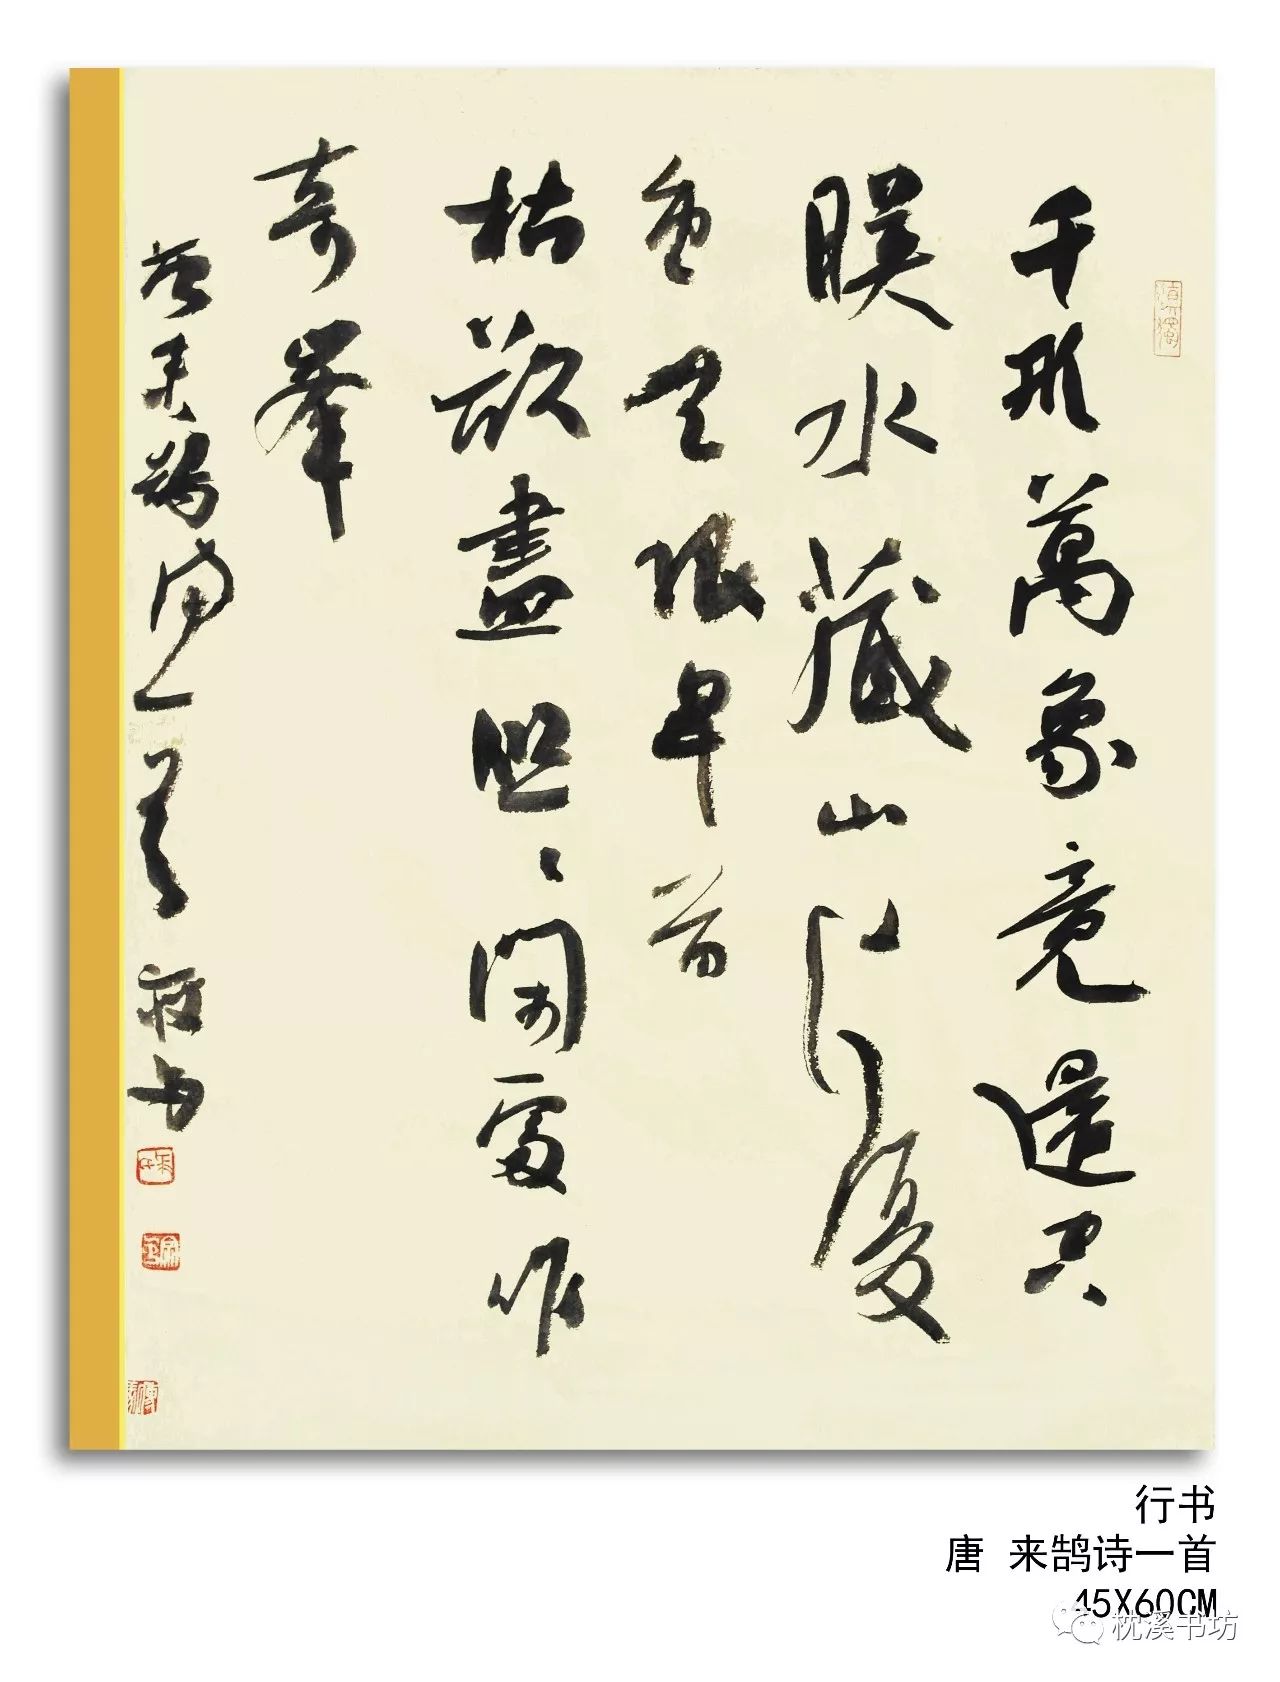 千形萬象竟還空
暎水藏山片復
重無限旱苗
枯欲盡悠々閒處作
奇峯
唐来鵠詩一首
行书
唐 来鹄诗一首
45X60CM
枕溪书坊